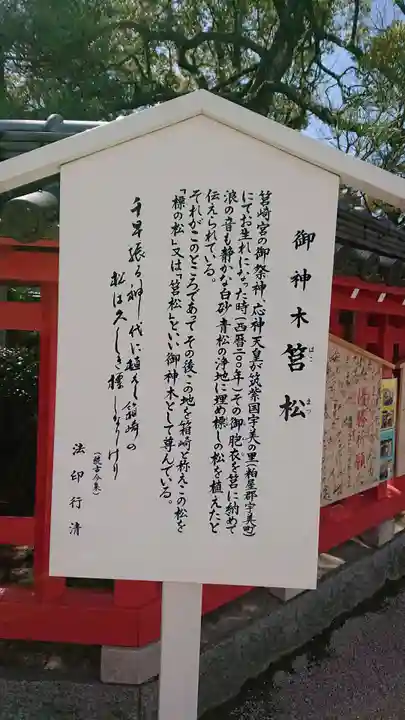 御神木筥松
はこ まつ
筥崎宮の御祭神、応神天皇が筑紫国宇美の里(粕屋郡宇美町)
にてお生れになった時(西暦二〇〇年)その御胞衣を筥に納めて
浪の音も静かな白砂青松の浄地に埋め標しの松を植えたと
伝えられている。
それがこのところであって その後この地を箱崎と称えこの松を
「標の松」又は「筥松」といい御神木として尊んでいる。
千早振る神代に植えし箱崎の
松は久しき標しなりけり
(続古今集)
法印行清
優勝祈願